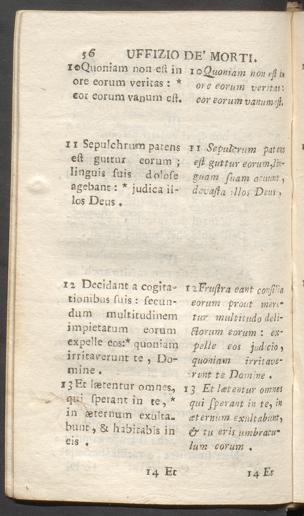 56 UFFIZIO DE' MORTI.
10 Quoniam non est in
ore eorum veritas : *
cor eorum vanum est.
11 Sepulchrum patens
est guttur eorum ;
linguis suis dolose
agebant : * judica il-
los Deus .
12 Decidant a cogita-
tionibus suis : secun-
dum multitudinem
impietatum eorum
expelle eos:* quoniam
irritaverunt te , Do-
mine .
13 Et lætentur omnes,
qui sperant in te, *
in æternum exulta-
bunt, & habitabis in
eis .
14 Et
10 Quoniam non est in
ore eorum veritas:
cor eorum vanum est.
11 Sepulcrum patens
est guttur eorum, lin-
guam suam acuunt,
devasta illos Deus ,
12 Frustra eant consilia
eorum prout mere-
tur multitudo deli-
ctorum eorum : ex-
pelle eos judcio,
quoniam irritave-
runt te Domine .
13 Et lætentur omnes
qui sperant in te, in
æternum exultabunt,
& tu eris umbracu-
lum eorum .
14 Et